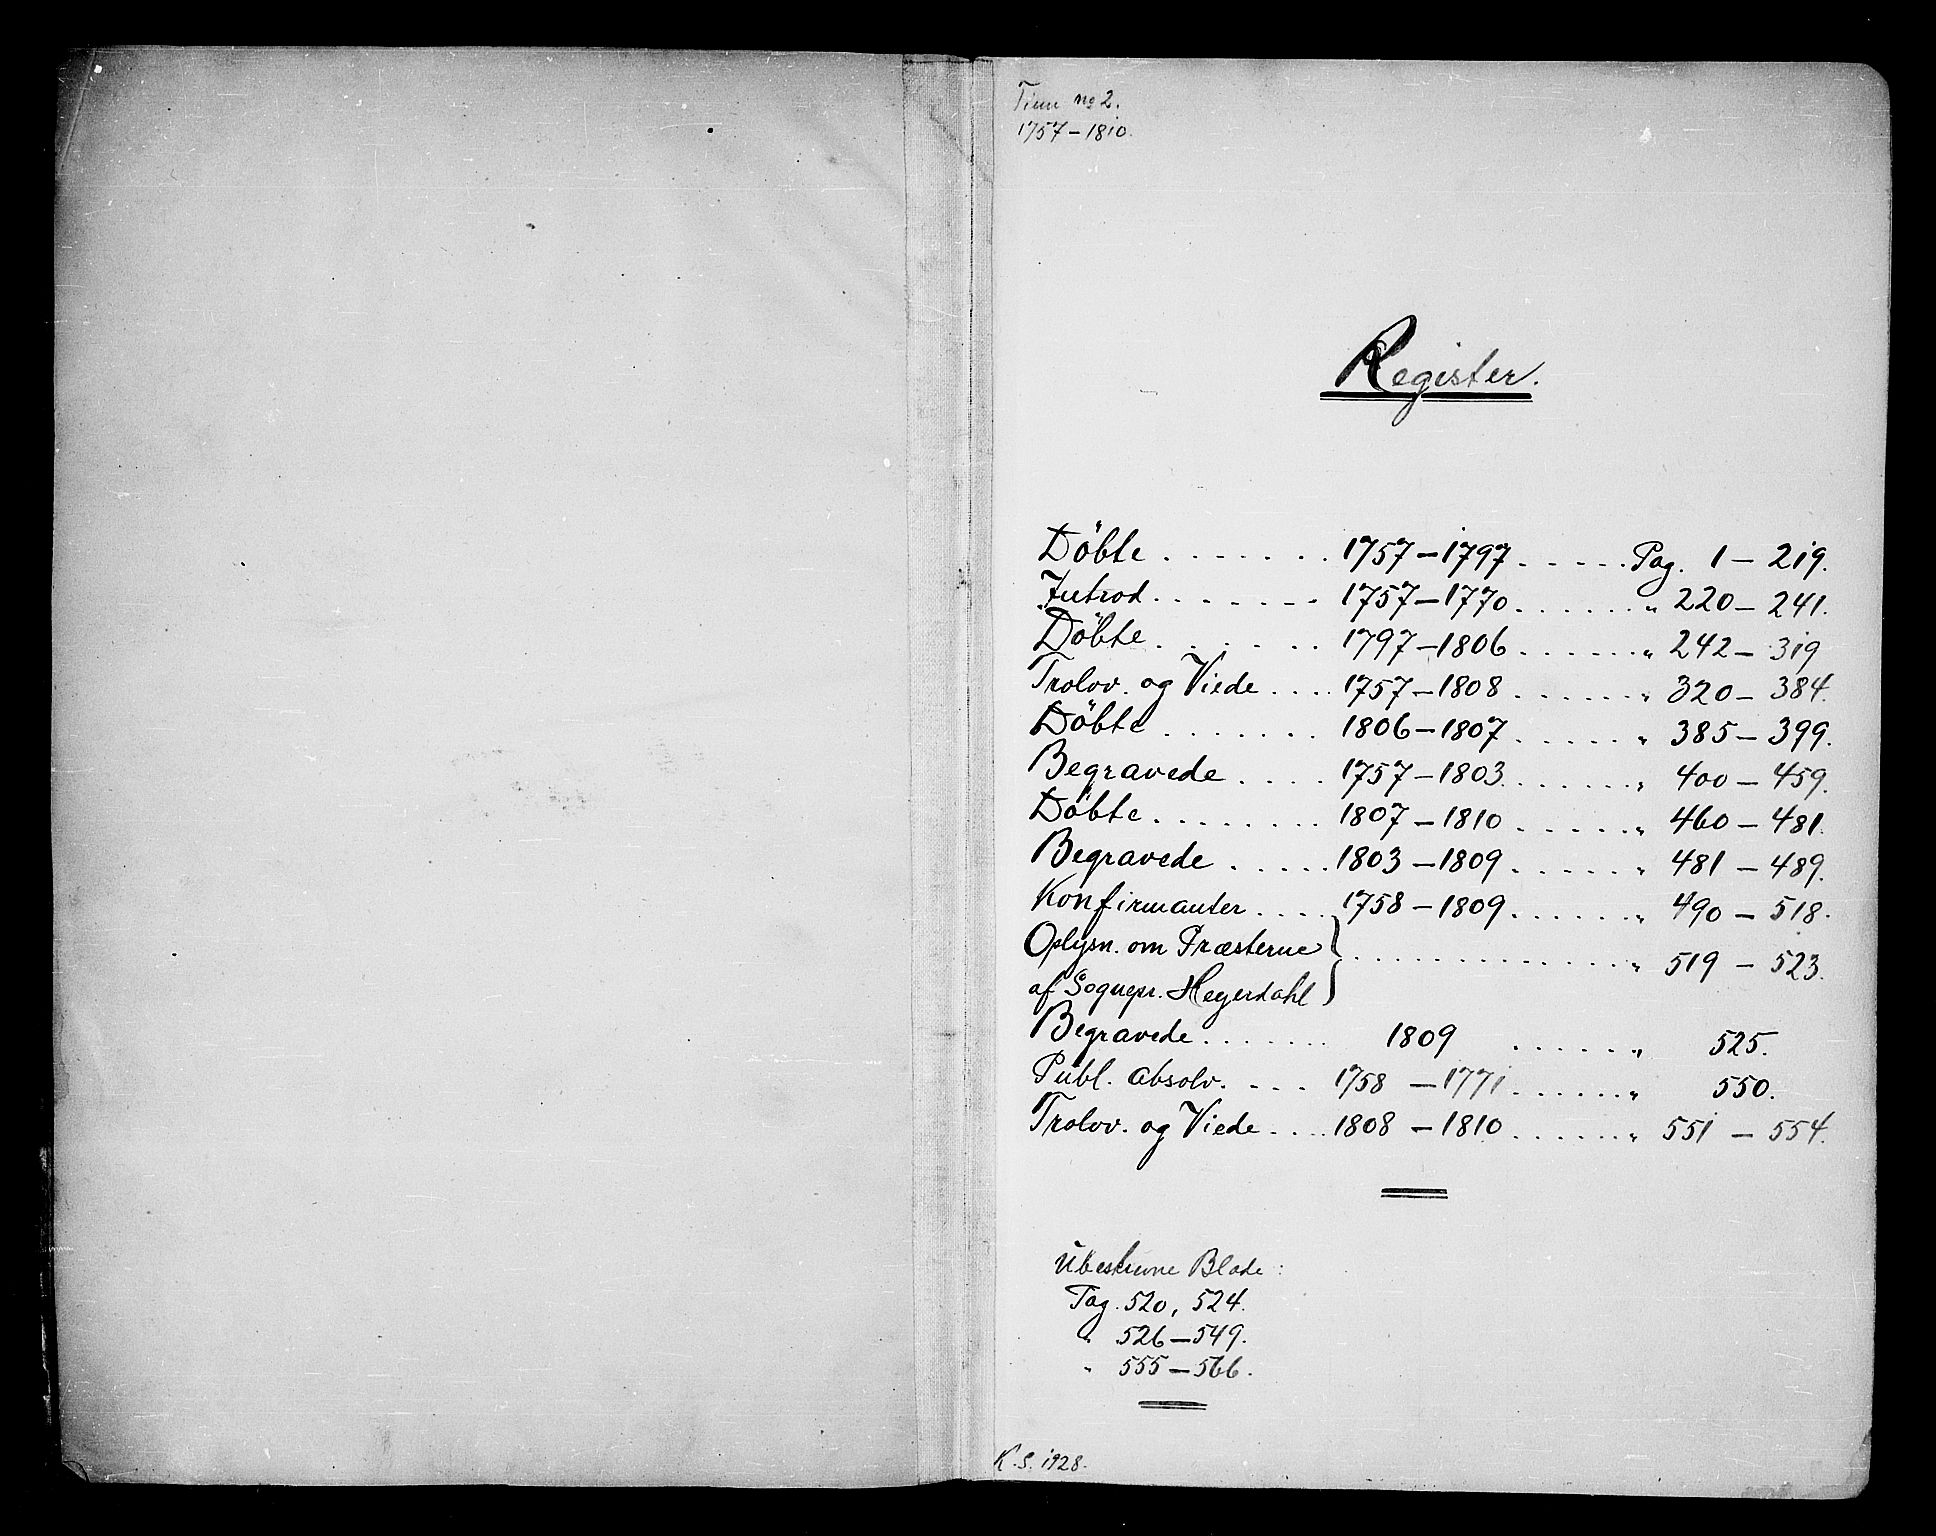 Tinn no 2.
1757 – 1810.
Register.
Döbte . . . . . . . 1757 – 1797 . . . . . Pag. 1 – 219.
Introd. . . . . . . . 1757 – 1770 . . . . . . " 220 – 241.
Döbte . . . . . . 1797 – 1806 . . . . . . " 242 – 319
Trolov. og Viede . . . . 1757 – 1808 . . . . . . " 320 – 384.
Döbte . . . . . . . 1806 – 1807 . . . . . " 385 – 399.
Begravede . . . . 1757 – 1803 . . . . . . " 400 – 459.
Döbte . . . . . . . . 1807 – 1810 . . . . . " 460 – 481.
Begravede . . . . . 1803 – 1809 . . . . . . " 481 – 489.
Konfirmanter . . . . 1758 – 1809 . . . . . . " 490 – 518.
Oplysn. om Præsterne } . . . . . . . . . . . . . . " 519 – 523.
af Sognepr. Heyerdahl
Begravede . . . . . . . 1809 . . . . . . " 525.
Publ. absolv. . . . 1758 – 1771 . . . . . . " 550.
Trolov. og Viede . . . . 1808 – 1810 . . . . . . " 551 – 554.
Ubeskrevne Blade :
Pag. 520, 524.
" 526 – 549.
" 555 – 566.
K. S. 1928.